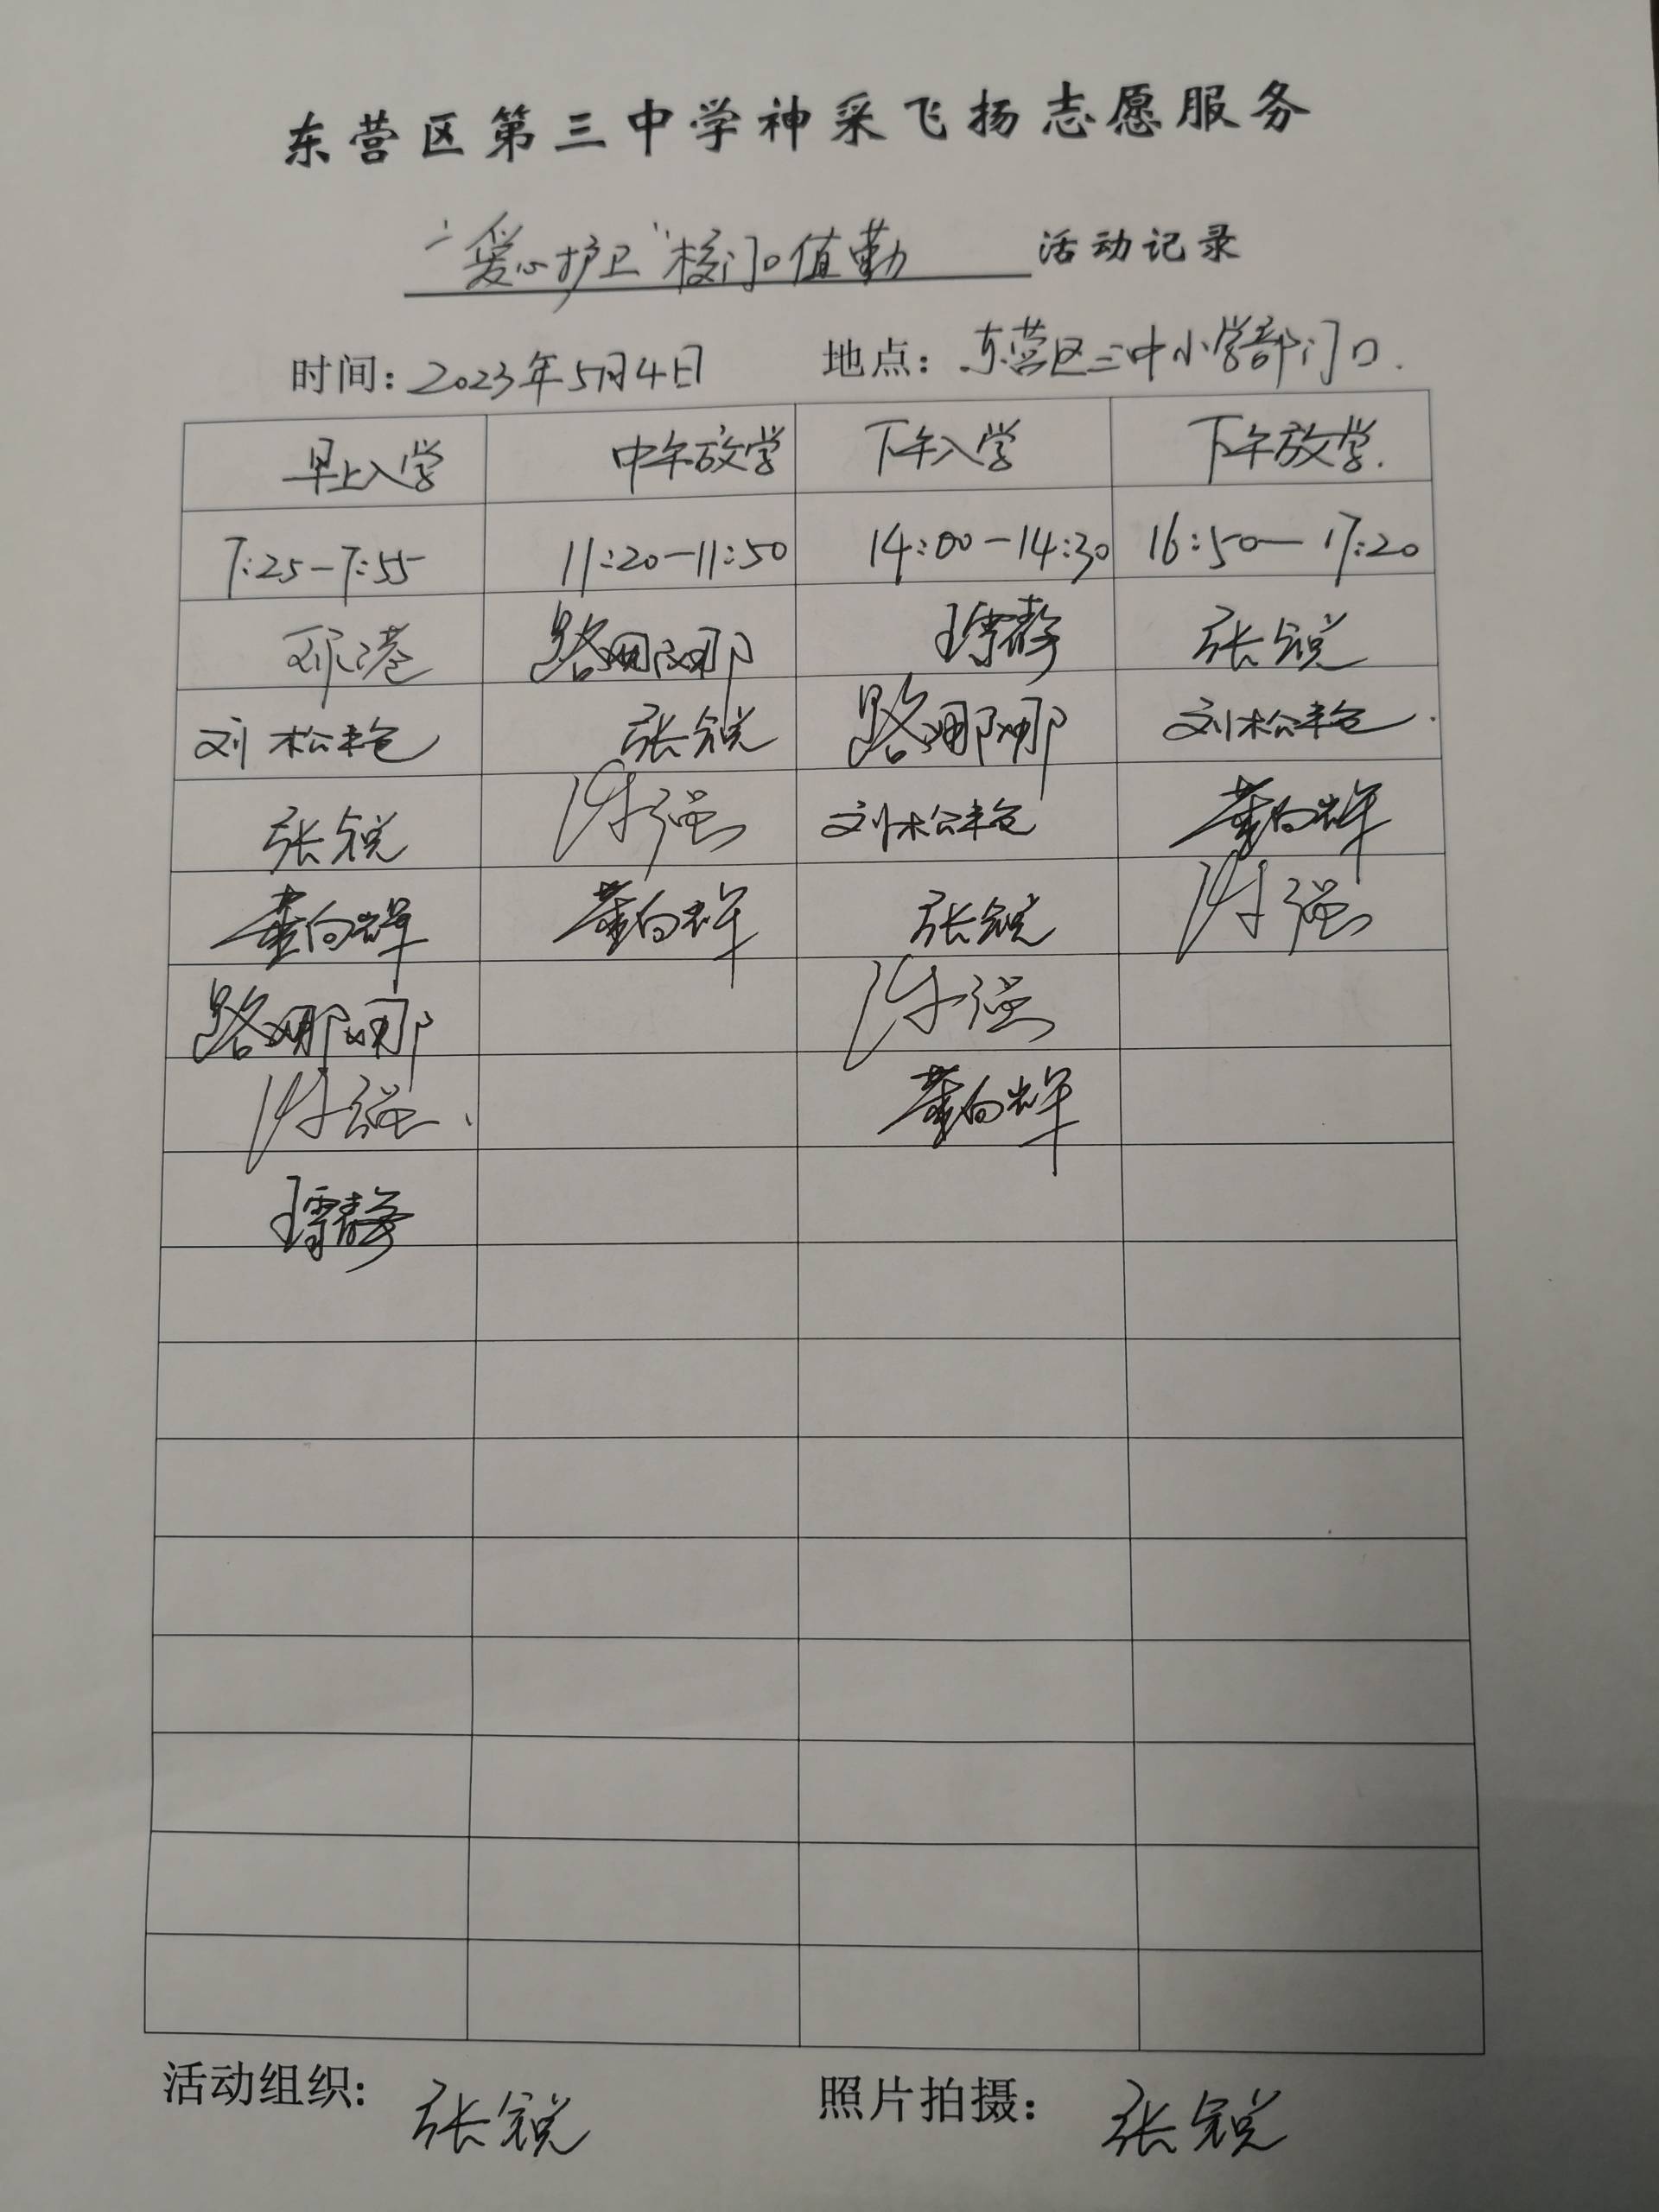 东营区第三中学神采飞扬志愿服务
“爱心护卫”校门口值勤 活动记录
时间：2023年5月4日 地点：东营区三中小学部门口.
早上入学 中午放学 下午入学 下午放学.
7:25-7:55 11:20-11:50 14:00-14:30 16:50-17:20
邓港 路娜娜 王霄静 张锐
刘松艳 张锐 路娜娜 刘松艳.
张锐 陈强 刘松艳 董向辉
董向辉 董向辉 张锐 陈强
路娜娜 陈强
陈强. 董向辉
王霄静
活动组织: 张锐 照片拍摄: 张锐